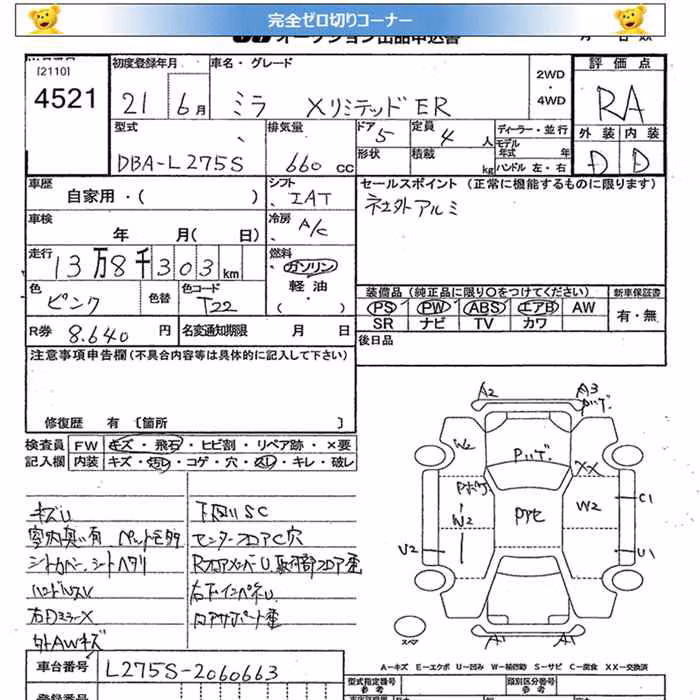 完全ゼロ切りコーナー
オークション出品申込書
[2110]
4521
初度登録年月
21年 6月
車名・グレード
ミラ XリミテッドER
2WD
・
4WD
評価点
RA
外装 内装
D D
型式
DBA-L275S
排気量
660cc
ドア 5
形状
定員 4人
積載 kg
ディーラー・並行
モデル年式 年
ハンドル 左・右
車歴
自家用・( )
シフト
IAT
セールスポイント (正常に機能するものに限ります)
社外アルミ
車検
年 月( 日)
冷房
A/C
走行
13万8千303km
燃料
ガソリン
軽油
( )
色
ピンク
色替
色コード
T22
装備品 (純正品に限り〇をつけてください)
新車保証書
PS PW ABS エアB AW
SR ナビ TV カワ
有・無
R券 8.640円
名変通知期限 月 日
後日品
注意事項申告欄 (不具合内容等は具体的に記入して下さい)
修復歴 有 [箇所 ]
検査員
記入欄
FW キズ・飛石・ヒビ割・リペア跡・×要
内装 キズ・汚れ・コゲ・穴・スレ・キレ・破レ
キズU
室内臭い有
シートカバー、シートヘタリ
ハンドルスレ
右DミラーX
外AWキズ
下回りSC
センターフロアC穴
右下インペネU
A2
A3
W2
XX
W2
W2
C1
U2
U1
A1
A1
スペア
A-キズ E-エクボ U-凹み W-補修跡 S-サビ C-腐食 XX-交換済
車台番号 L275S-2060663
登録番号
型式指定番号
参考
類別区分番号
参考